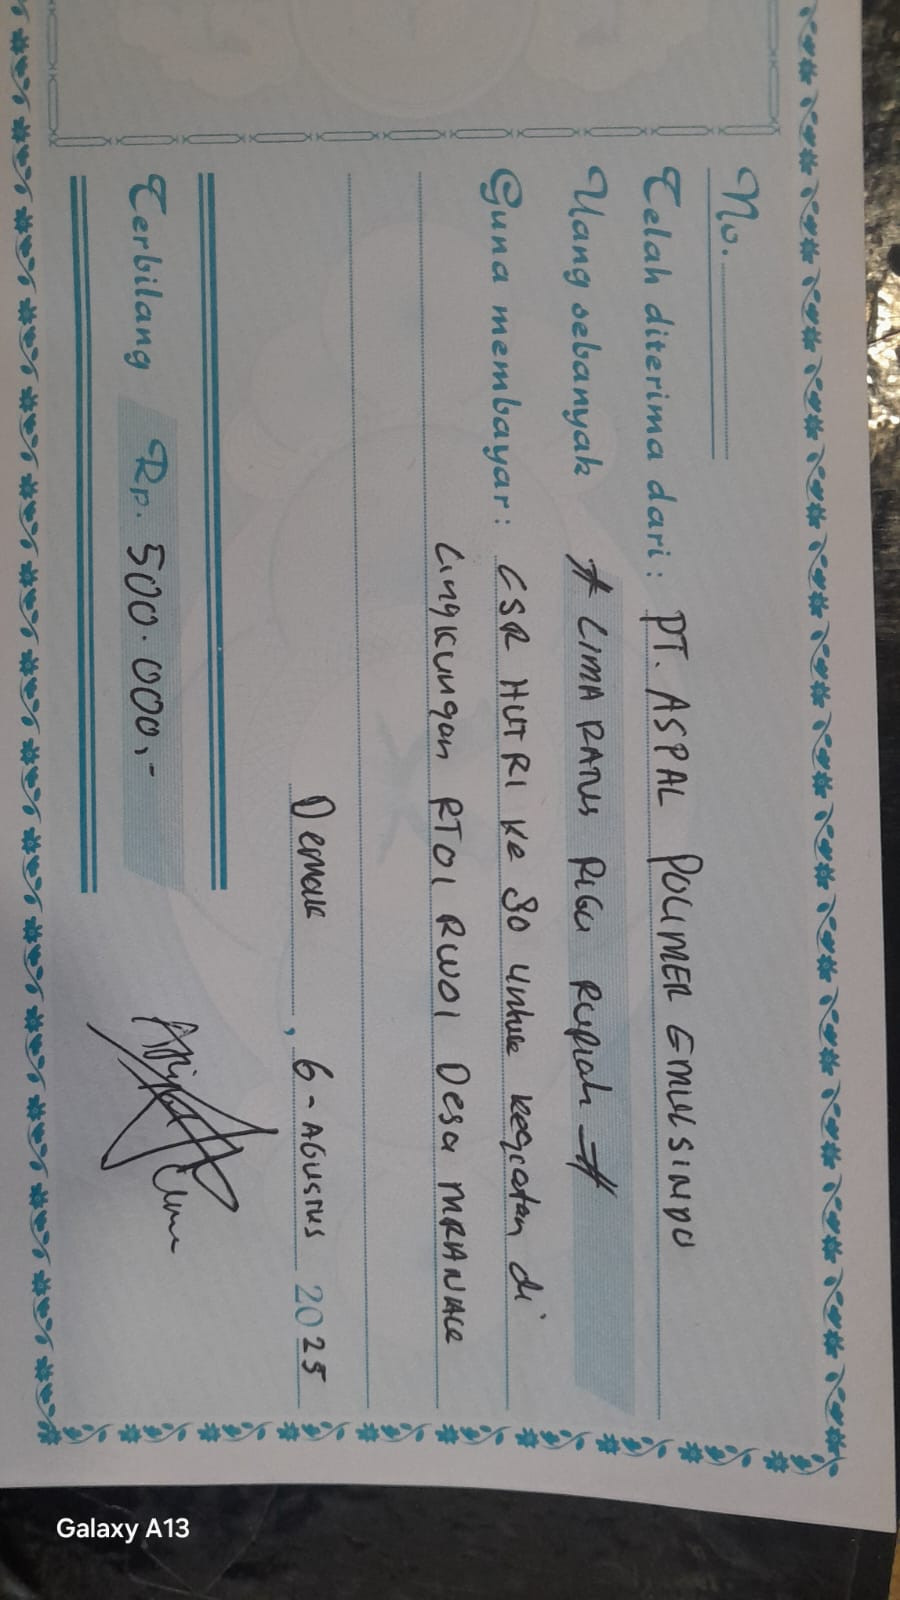 No.
Telah diterima dari : PT. ASPAL POLIMER EMULSINDO
Uang sebanyak # LIMA RATUS RIBU RUPIAH #
Guna membayar : CSR HUT RI Ke 80 untuk kegiatan di
Lingkungan RT01 RW01 Desa MRANAK
Demak, 6 - AGUSTUS 2025
Terbilang Rp. 500.000,-
Galaxy A13